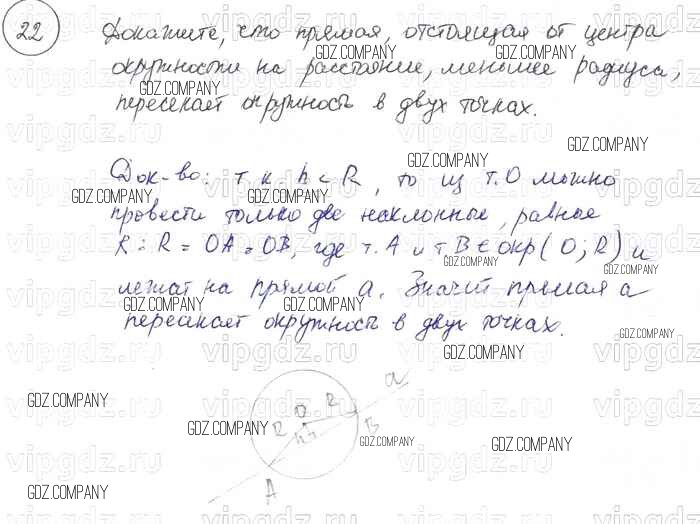 22 Докажите, что прямая, отстоящая от центра
окружности на расстояние, меньшее радиуса,
пересекает окружность в двух точках.
Док-во: т.к. h < R, то из т.О можно
провести только две наклонные, равные
R : R = OA = OB, где т.А и т В ∈ окр(О; R) и
лежат на прямой а. Значит прямая а
пересекает окружность в двух точках.
a
O R
R h B
A
GDZ.COMPANY
vipgdz.ru